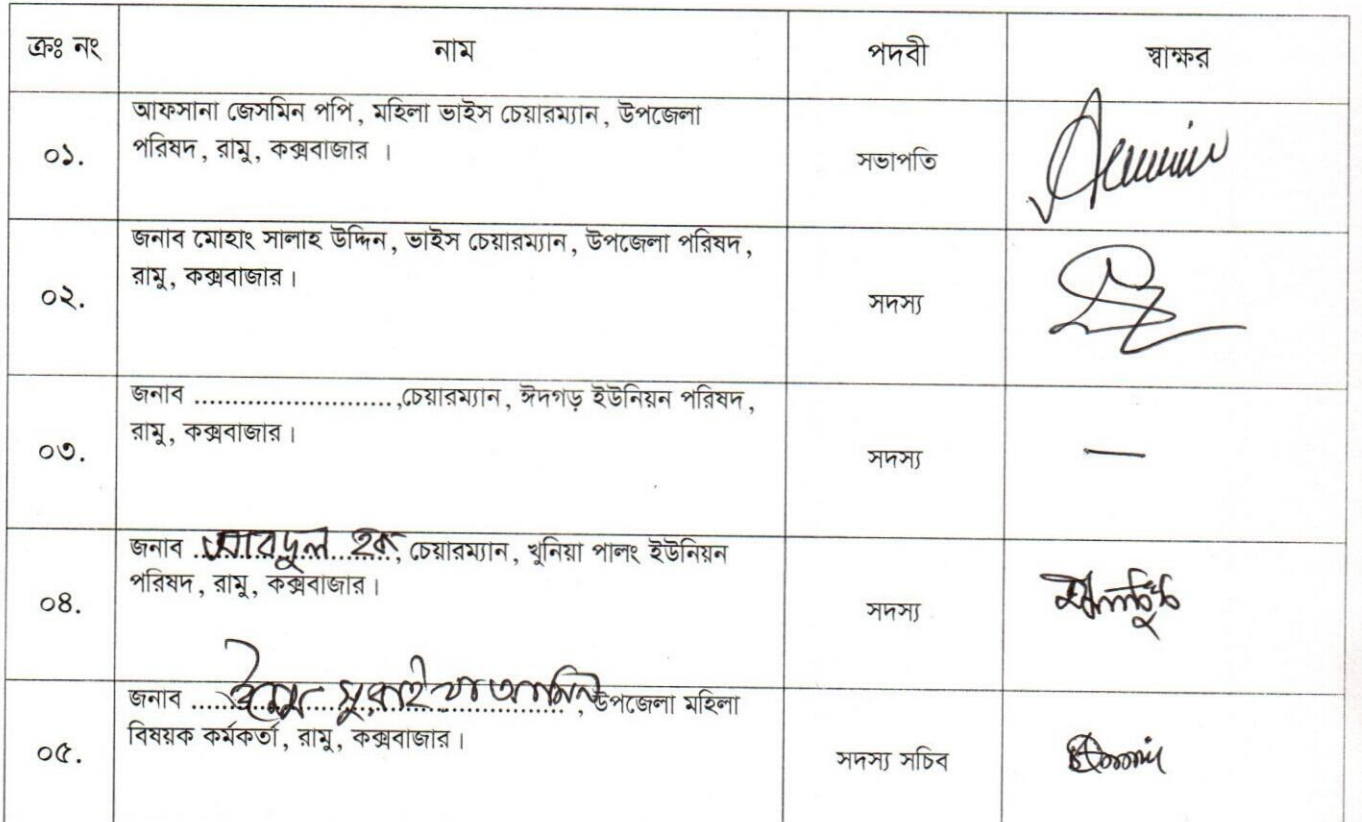 ক্রঃ নং নাম পদবী স্বাক্ষর
আফসানা জেসমিন পপি, মহিলা ভাইস চেয়ারম্যান, উপজেলা
০১. পরিষদ, রামু, কক্সবাজার । সভাপতি
জনাব মোহাং সালাহ উদ্দিন, ভাইস চেয়ারম্যান, উপজেলা পরিষদ,
রামু, কক্সবাজার।
০২. সদস্য
জনাব ..........................,চেয়ারম্যান, ঈদগড় ইউনিয়ন পরিষদ,
রামু, কক্সবাজার।
০৩. সদস্য —
জনাব আবদুল হক, চেয়ারম্যান, খুনিয়া পালং ইউনিয়ন
পরিষদ, রামু, কক্সবাজার।
০৪. সদস্য
জনাব সুরাইয়া আমিন, উপজেলা মহিলা
বিষয়ক কর্মকর্তা, রামু, কক্সবাজার।
০৫. সদস্য সচিব